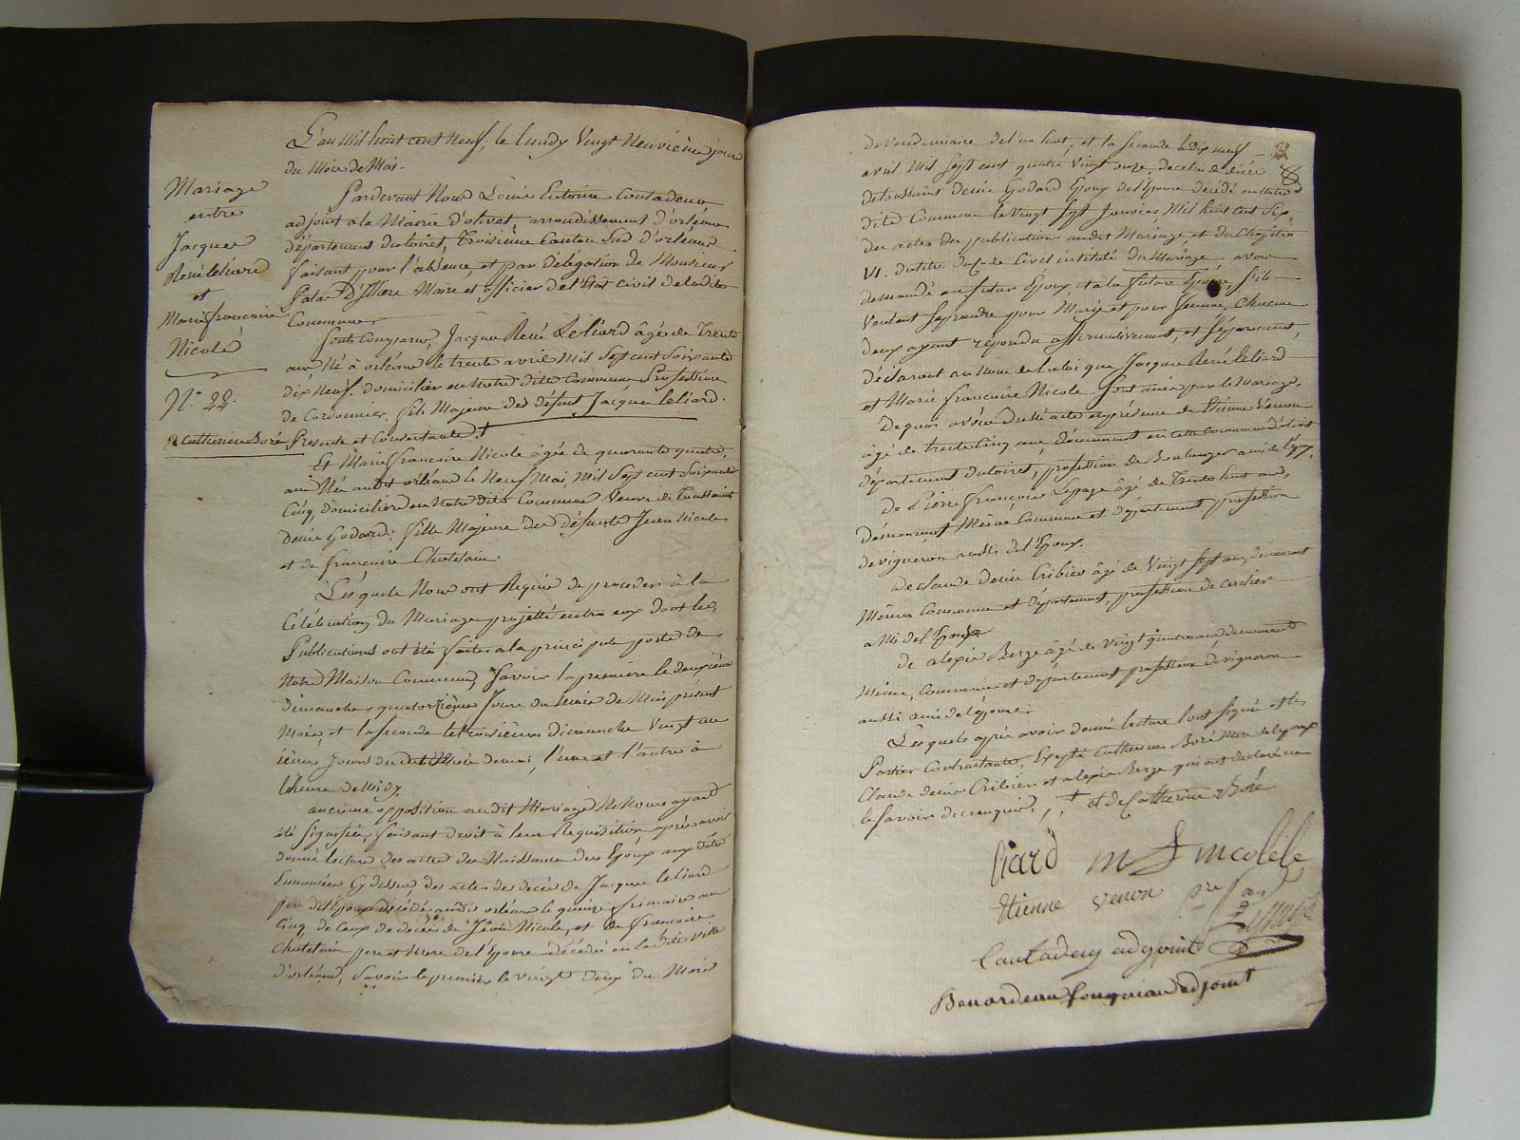 L'an Mil huit cent Neuf, le lundy Vingt Neuvième jour
du Mois de Mai.
Mariage
entre
Jacques
René leliard
et
Marie françoise
Nicole
N.° 22.
& catherine Boré
Pardevant Nous Louis Antoine Contadeur
adjoint a la Mairie d'olivet, arrondissement d'orléans
département du loiret, troisième Canton Sud d'orléans
faisant pour l'absence, et par délégation de Monsieur
Maire et officier de l'état civil de ladite
Commune
Sont comparus, Jacques René Leliard âgé de Trente
ans Né à orléans le trente avril Mil Sept cent Soixante
dix Neuf. domicilié en Notre ditte Commune Profession
de Cordonnier, fils Majeur des défunt Jacques Leliard.
Presente et Consentante †
Et Marie françoise Nicole âgée de quarante quatre
ans Née audit orléans le Neuf Mai, Mil Sept cent Soixante
Cinq, domiciliée en Notre dite Commune Veuve de Toussaint
Denis Godard. fille Majeure des défunts Jean Nicole
et de françoise Chatelain
Lesquels Nous ont Requis de proceder à la
Célébration du Mariage projetté entre eux dont les
Publications ont été faites a la principale porte de
Notre Maison Commune, Savoir la première le deuxième
dimanche quatorzième Jour du mois de Mai présent
Mois, et la seconde le troisième dimanche Vingt un
ième Jour dudit Mois de mai, l'une et l'autre à
l'heure de Midy.
aucune opposition audit Mariage Ne Nous ayant
été Signifiée, faisant droit à leur Réquisition, après avoir
donné lecture des actes de Naissance des Epoux aux dates
Enoncées Cy dessus, des actes de decès de Jacques leliard
per del'Epoux décédé audit orléans le quinze frimaire an
Cinq, de Ceux de décès de Jean Nicole, et de francoise
Chatelain père et Mere de l'Epouse décédés en la ditte Ville
d'orléans, Savoir le premier le vingt deux du Mois
de Vendemiaire del'an huit, et la seconde le dix neuf
avril Mil Sept cent quatre Vingt onze, de celui de décès
8
de toussaint denis Godard Epoux de l'Epouse décédé en Notre
dite Commune le vingt Sept Janvier Mil huit cent Six,
des actes de publication audit Mariage, et du Chapitre
VI. du titre du Code Civil intitulé du Mariage, avons
demandé au futur Epoux, et à la future Epouse, S'ils
Veulent Se prendre pour Mari et pour femme, Chacun
deux ayant répondu affirmativement, et Séparément,
déclarons au Nom de la loi que Jacques René leliard
et Marie francoise Nicole Sont unis par le Mariage.
De quoi avons dressé acte en présence de Etienne Venon
âgé de trente cinq ans, demeurant en cette Commune d'olivet
département du loiret, profession de Boulanger ami de l'Epoux.
de Pierre françois Lepage âgé de Trente huit ans,
demeurant Même Commune et département profession
de vigneron aussi del'Epoux.
de claude Denis Cribier âgé de Vingt Sept ans, demeurant
Même Commune et département, profession de
ami del'Epouse
de alexis Berge âgé de vingt quatre ans, demeurant
Même, Commune et département profession de vigneron
aussi ami de l'Epouse
Lesquels après avoir donné lecture l'ont Signé et les
Parties Contractantes, Excepté Catherine Boré Mere del'Epoux
Claude denis Cribier et alexis Berge qui ont declaré ne
le Savoir de ce enquis, † et de Catherine Boré
liard m f nicolele
Etienne venon
Cautadeug adjoint
Benardeau fougniau adjoint